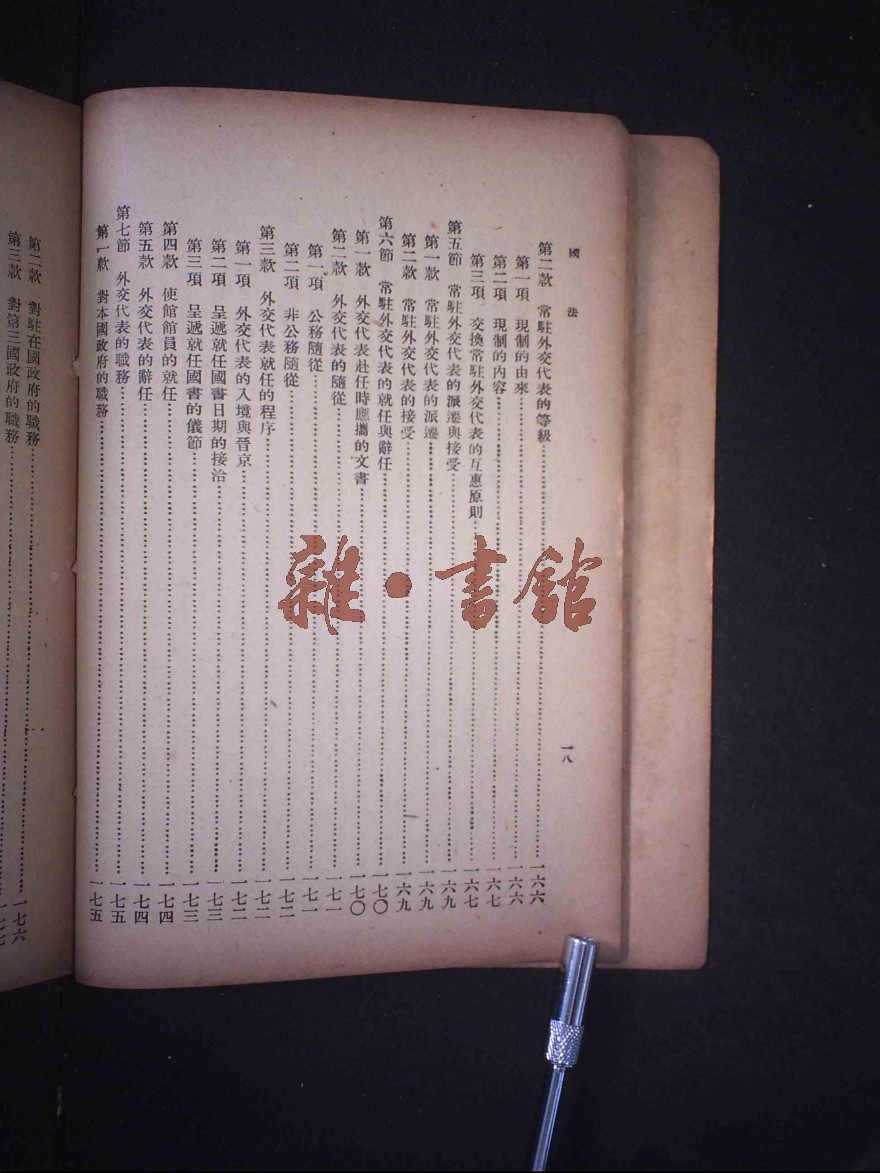 國法
一八
第二款 常駐外交代表的等級……一六六
第一項 現制的由來……一六六
第二項 現制的內容……一六七
第三項 交換常駐外交代表的互惠原則……一六七
第五節 常駐外交代表的派遷與接受……一六九
第一款 常駐外交代表的派遷……一六九
第二款 常駐外交代表的接受……一六九
第六節 常駐外交代表的就任與辭任……一七〇
第一款 外交代表赴任時應攜的文書……一七〇
第二款 外交代表的隨從……一七一
第一項 公務隨從……一七一
第二項 非公務隨從……一七二
第三款 外交代表就任的程序……一七二
第一項 外交代表的入境與晉京……一七二
第二項 呈遞就任國書日期的接洽……一七三
第三項 呈遞就任國書的儀節……一七三
第四款 使館館員的就任……一七四
第五款 外交代表的辭任……一七四
第七節 外交代表的職務……一七五
第一款 對本國政府的職務……一七五
第二款 對駐在國政府的職務……一七六
第三款 對第三國政府的職務……一七七
雜·書館